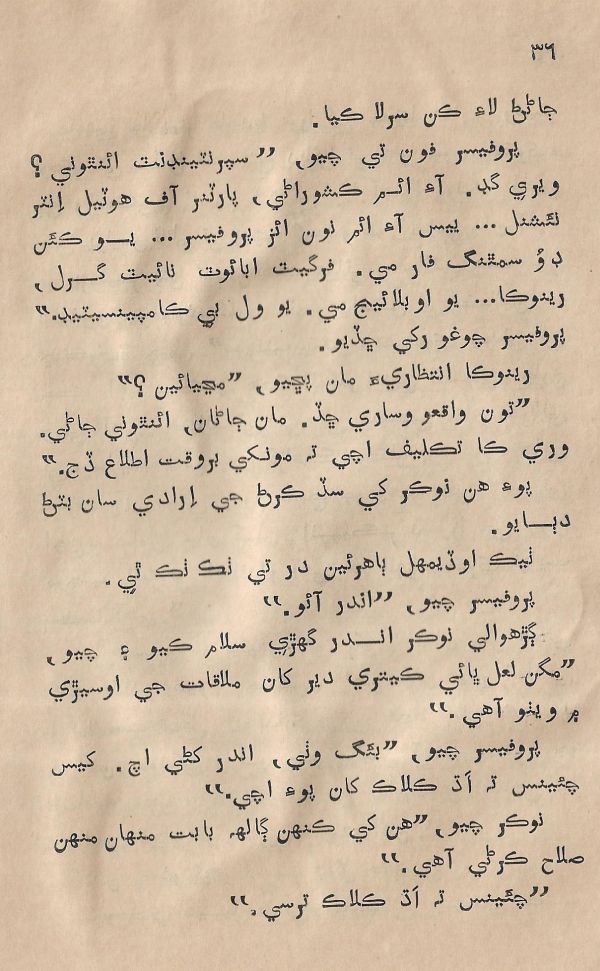 ٣٦
ڄاڻڻ لاءِ ڪن سرلا ڪيا.
پروفيسر فون تي چيو، ”سپرنٽينڊنٽ ائنٿوني؟
ويري گڊ. آءِ ائـم ڪشوراڻي، پارٽنر آف هوٽيل اِنٽر
نئشنل... ييس آءِ ائم نون ائز پروفيسر... يـو ڪئن
ڊؤ سمٿنگ فار مي. فرگيٽ ابائوٽ نائيٽ گـرل،
رينوڪا... يو اوبلائيج مي. يو ول بي ڪامپينسيٽيڊ.“
پروفيسر چوغو رکي ڇڏيو.
رينوڪا انتظاريءَ مان پڇيو، ”مڃيائين؟“
”تون واقعو وساري ڇڏ. مان ڄاڻان، ائنٿوني ڄاڻي.
وري ڪا تڪليف اچي ته مونکي بروقت اطلاع ڏج.“
پوءِ هن نوڪر کي سڏ ڪرڻ جي اِرادي سان بٽڻ
دٻـايو.
ٺيڪ اوڏيمهل ٻاهرئين در تي ٺڪ ٺڪ ٿي.
پروفيسر چيو، ”اندر آئو.“
ڳڙهوالي نوڪر انـدر گهڙي سلام ڪيو ۽ چيو،
”مگن لعل ڀائي ڪيتري دير کان ملاقات جي اوسيڙي
۾ ويٺو آهي.“
پروفيسر چيو، ”بئگ وٺي، اندر کڻي اچ. ڪيس
چئينس ته اَڌ ڪلاڪ کان پوءِ اچي.“
نوڪر چيو، ”هن کي ڪنهن ڳالهه بابت منهان منهن
صلاح ڪرڻي آهي.“
”چئينس ته اَڌ ڪلاڪ ترسي.“